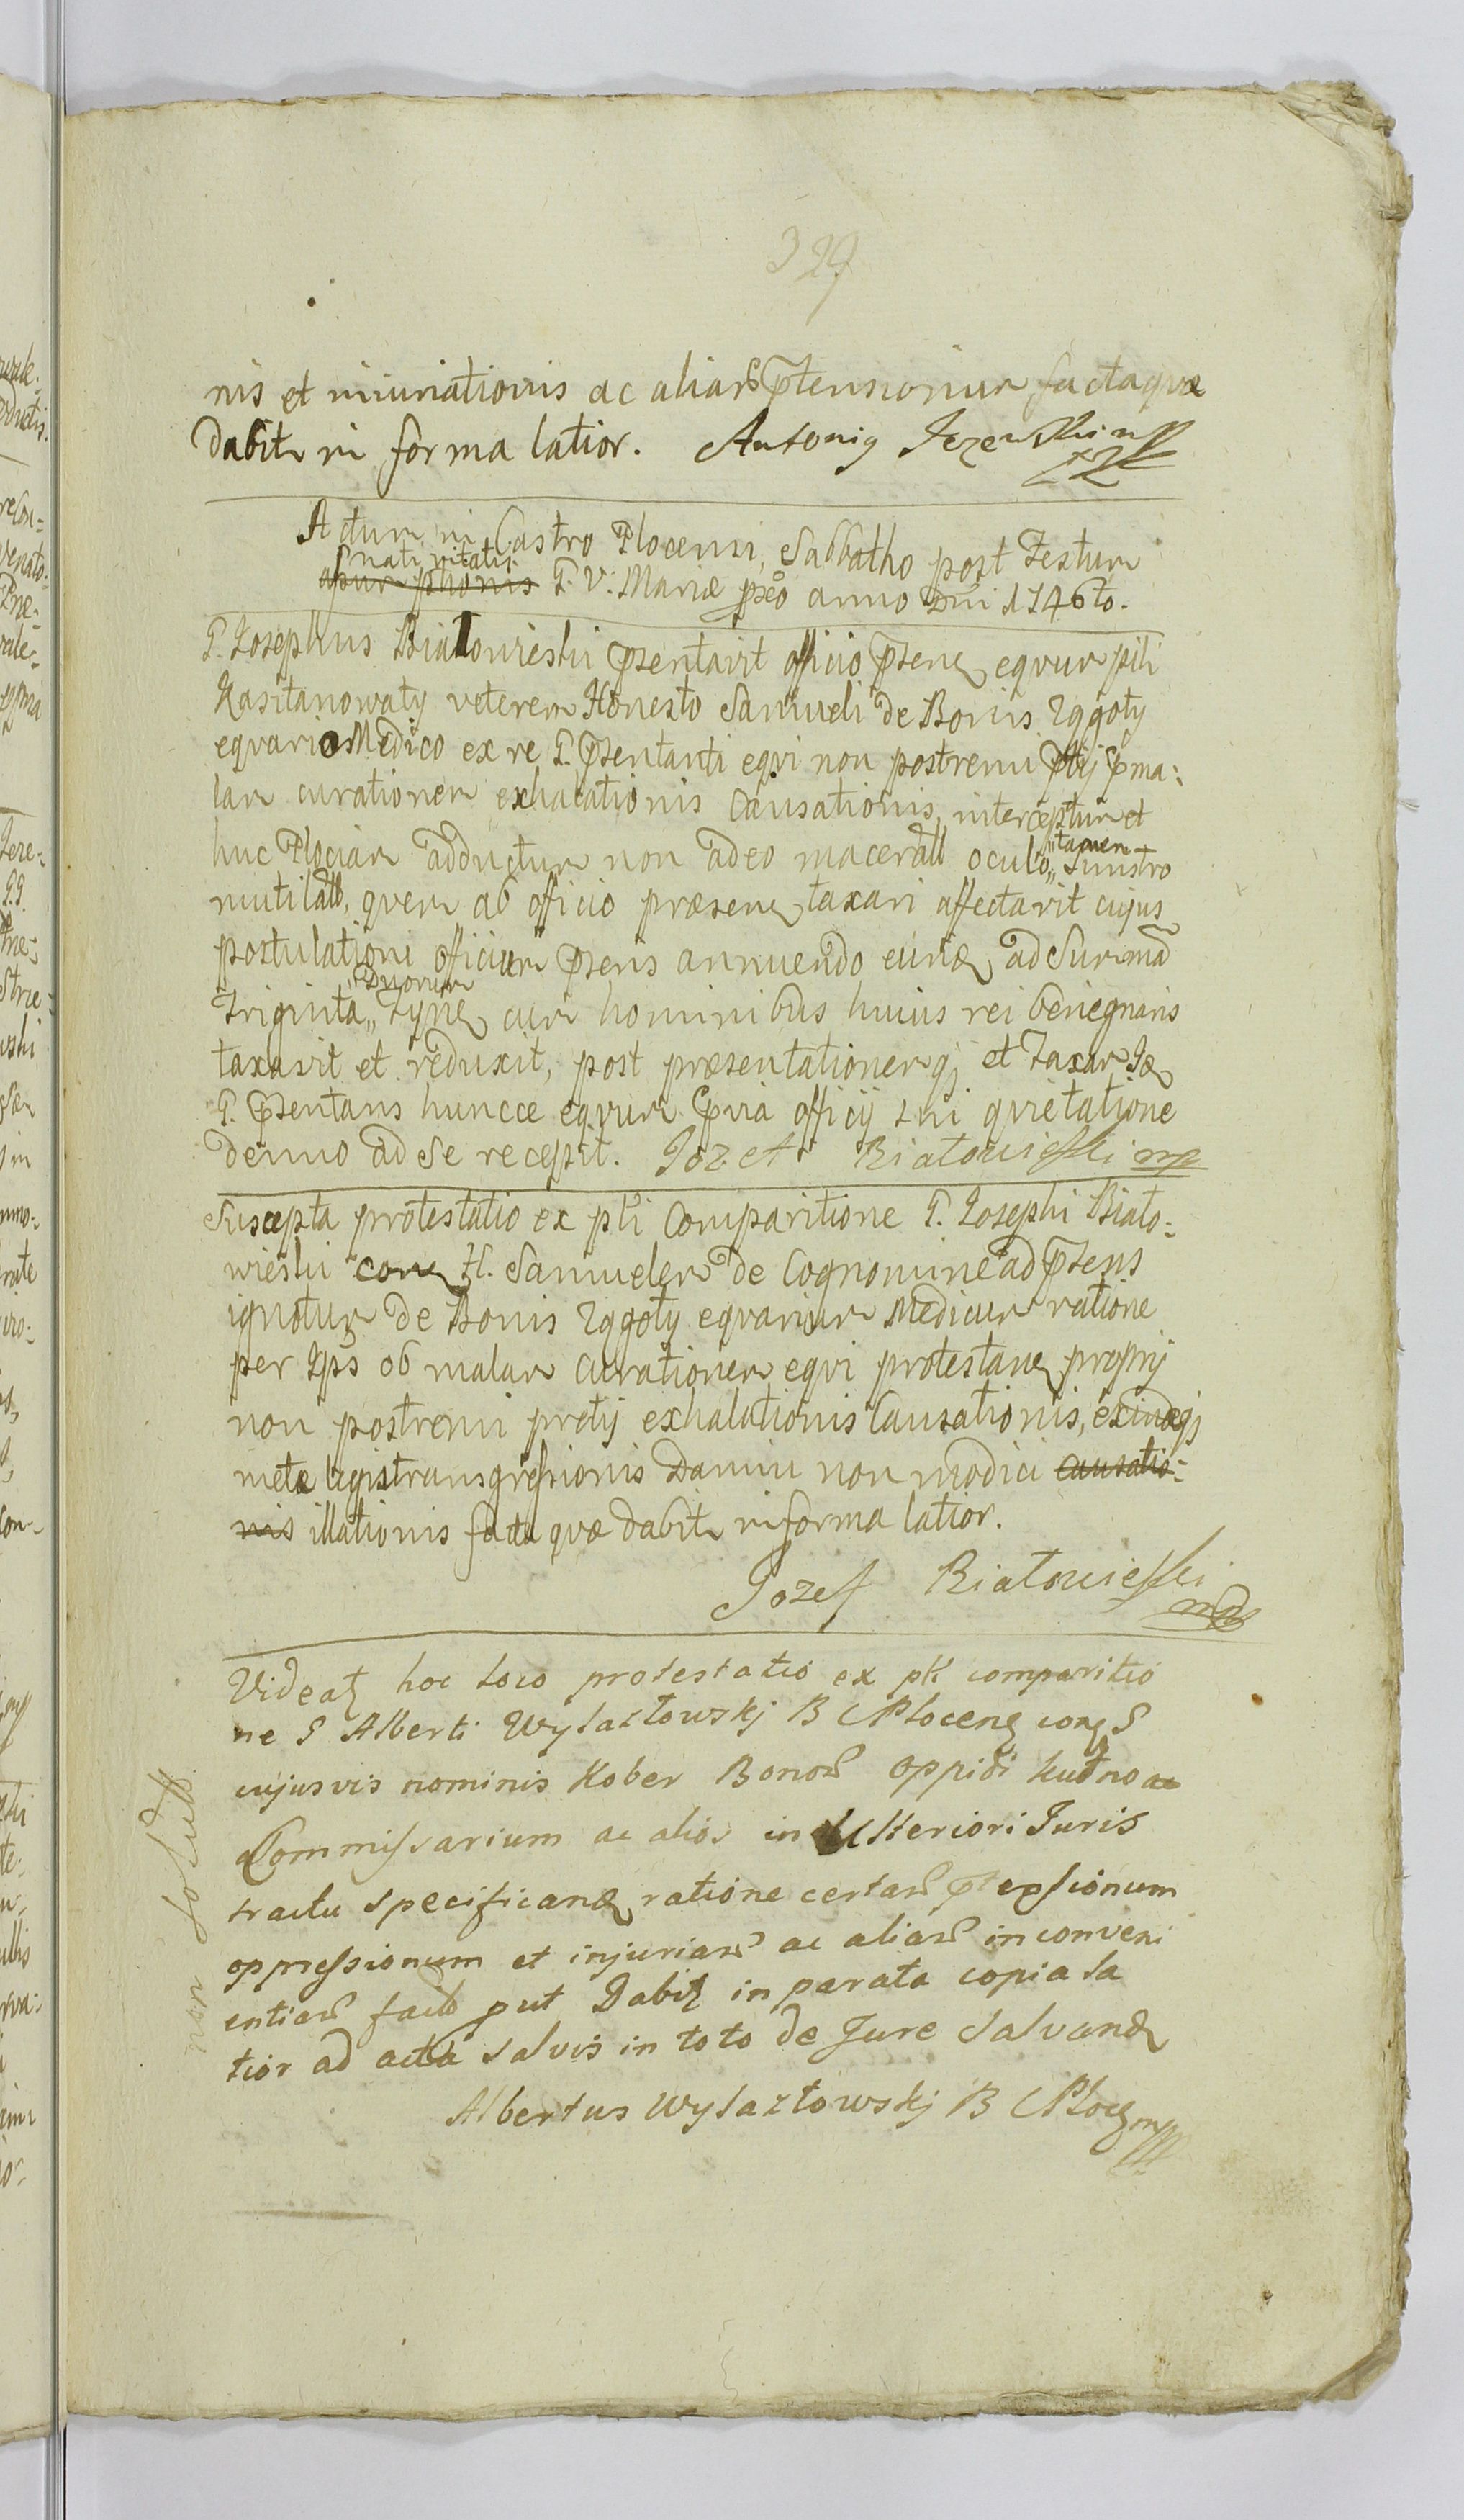 329
nis et iniuriationis ac aliar ptensionum facta quæ
dabit in forma latior. Antoni Jezewski mp
Actum in Castro Plocensi, Sabbatho post Festum
nativitatis
B. V. Mariæ pxo anno Dni 1746to.
G. Josephus Białowieski psentavit officio psenti equum pili
Kasztanowaty veterem Honesto Samueli de Bonis Zggoty
equario Medico ex re G. psentanti equi non postremi ptij p ma:
lam curationem exhalationis Causationis, interceptum et
huc Plociam adductum non adeo macerat oculo „tamen„ sinistro
mutilat, quem ab officio præsen taxari affectavit cujus
postulationi officium psens annuendo eund ad Summā
Triginta „Duorum„ Tynf cum hominibus huius rei benegnaris
taxavit et reduxit, post præsentationem qz et Taxam Id
G. psentans huncce equum pvia officij sui quietatione
denuo ad se recepit. Jozef Białowieski mp
Suscepta protestatio ex pti Comparitione G. Josephi Biało:
wieski con H. Samuelem de Cognomine ad psens
ignotum de Bonis Zggoty equarium Medicum ratione
per Ips ob malam curationem equi protestan proprij
non postremi pretij exhalationis Causationis, exindeqz
metæ legis transgressionis Damni non modici causatio:
nis illationis facta quæ dabit in forma latior.
Jozef Białowieski mp
Videat hoc loco protestatio ex pti comparitio
ne G Alberti Wylazłowskj B C Plocen con G
cujusvis nominis Kober Bonor oppidi Kutno ac
Commissarium ac alios in Ulteriori Juris
tractu specificand ratione certar ptensionum
oppressionum et injuriar ac aliar inconveni
entiar facta put Dabit in parata copia la
tior ad acta salvis in toto de Jure Salvand
Albertus Wylazłowskj B C Plocen mp
non solut